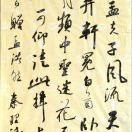 孟夫子風流天
軒冕白首臥
月頻中聖迷花不
可仰徒此揖
孟浩然